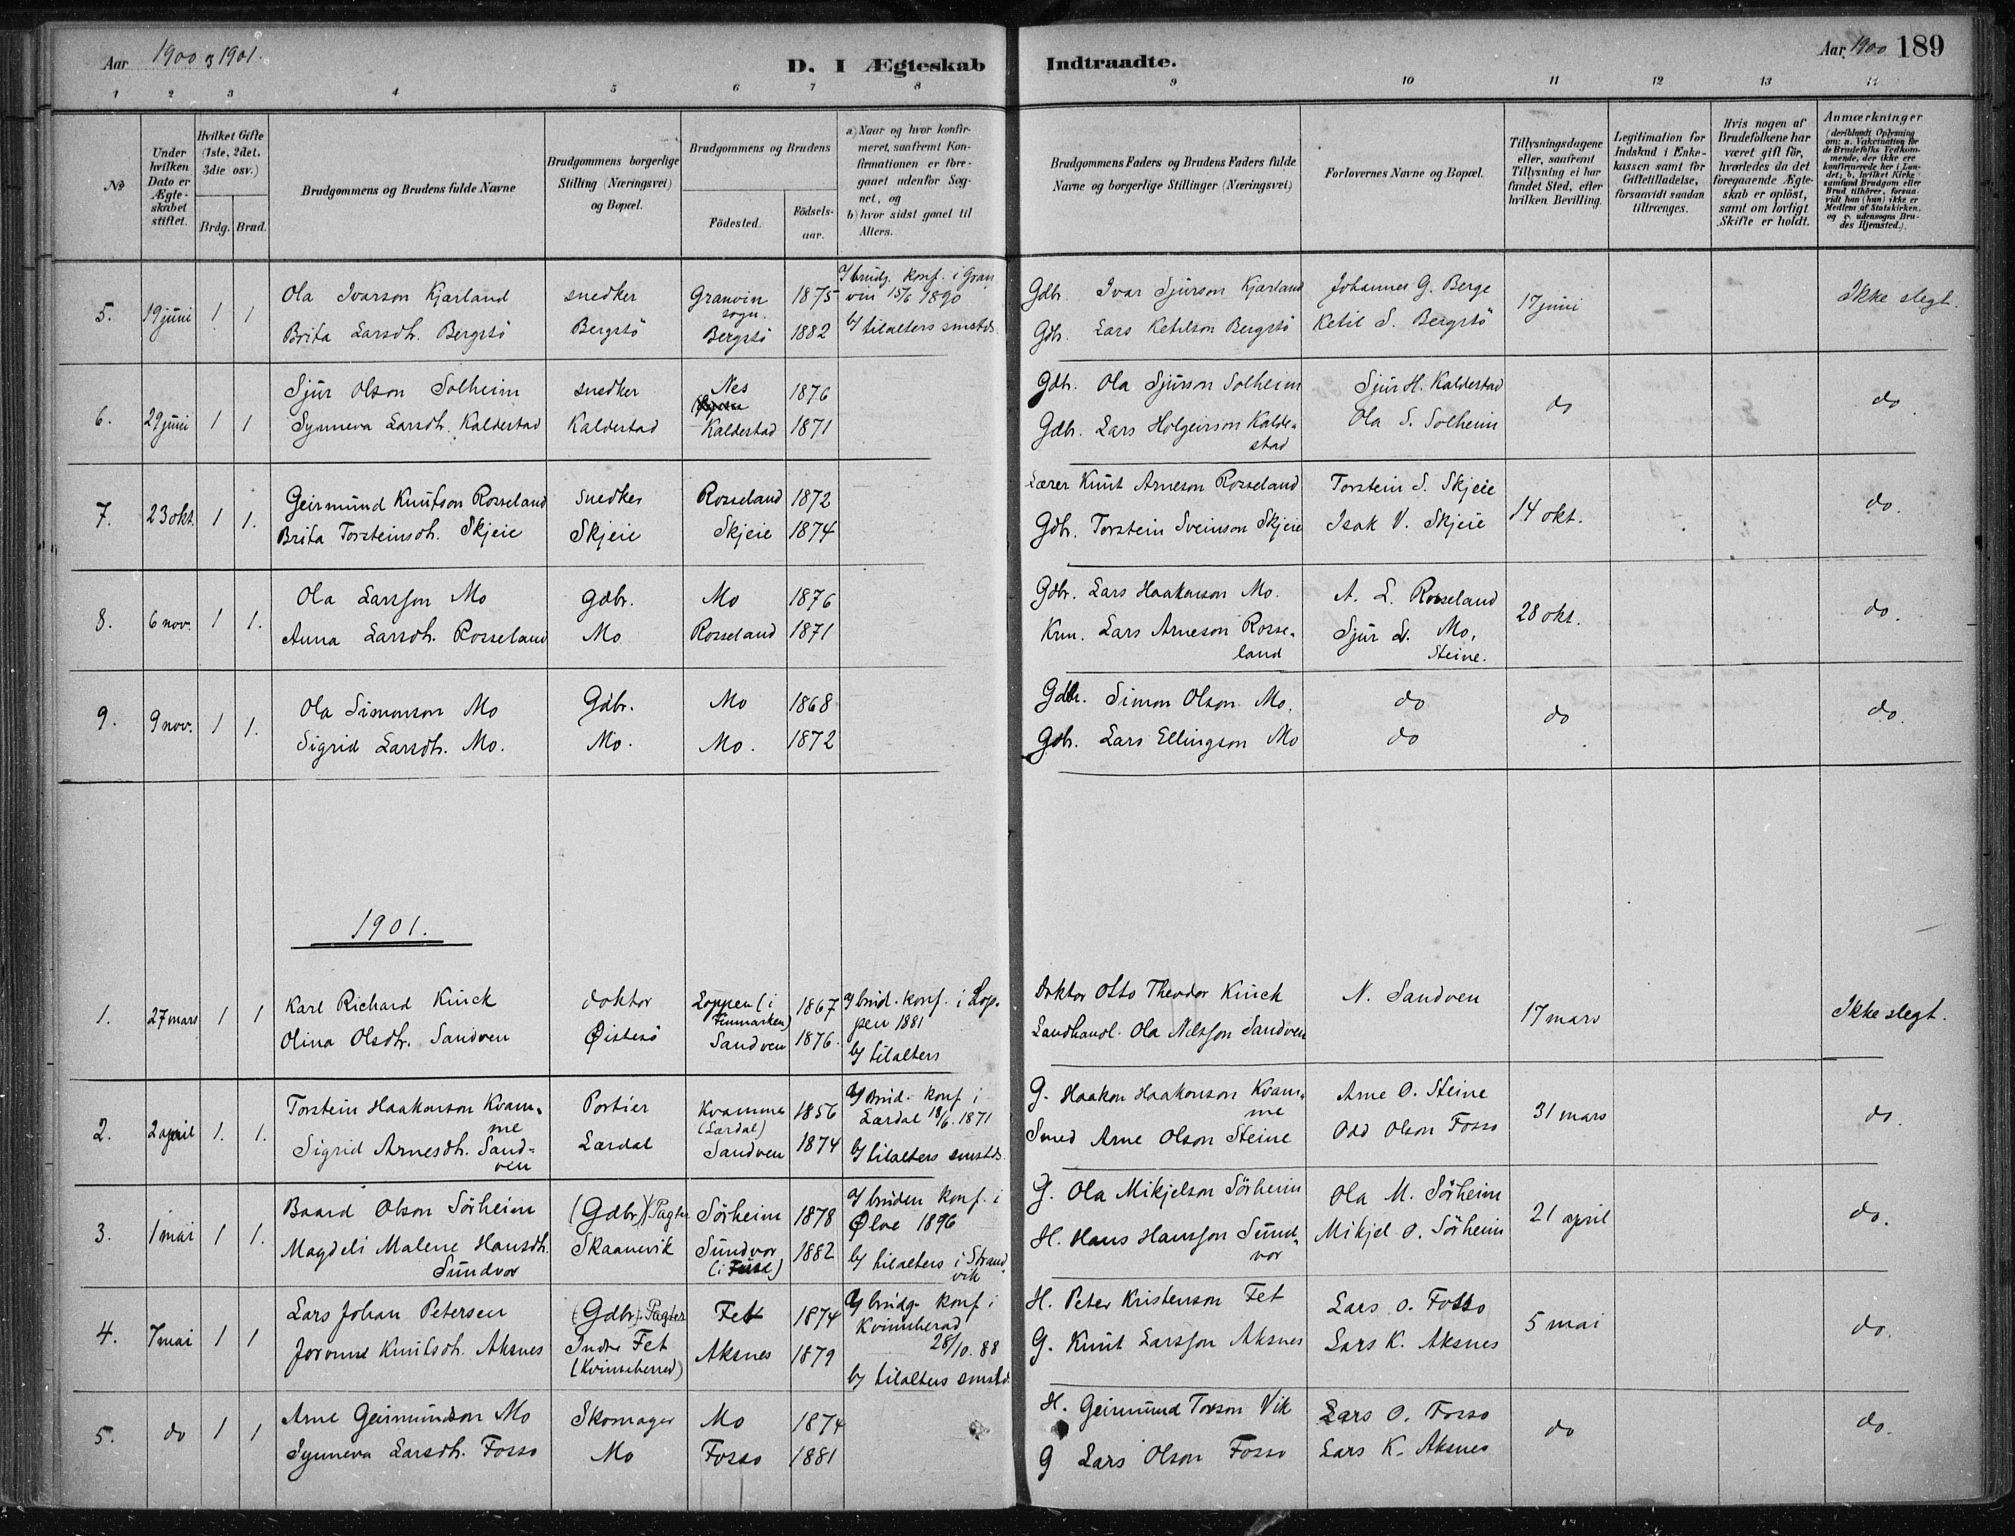 Aar 1900 og 1901.
D. I Ægteskab Indtraadte.
Aar 1900 189
1 2 3 4 5 6 7 8 9 10 11 12 13 14
No
Under hvilken Dato er Ægteskabet stiftet.
Hvilket Gifte (1ste, 2det, 3die osv.)
Brdg. Brud.
Brudgommens og Brudens fulde Navne
Brudgommens borgerlige Stilling (Næringsvei) og Bopæl.
Brudgommens og Brudens
Födested. Födsels-aar.
a) Naar og hvor konfirmeret, saafremt Konfirmationen er foregaaet udenfor Sognet, og
b) hvor sidst gaaet til Alters.
Brudgommens Faders og Brudens Faders fulde Navne og borgerlige Stillinger (Næringsvei)
Forlovernes Navne og Bopæl.
Tillysningsdagene eller, saafremt Tillysning ei har fundet Sted, efter hvilken Bevilling.
Legitimation for Indskud i Enkekassen samt for Giftetilladelse, forsaavidt saadan tiltrænges.
Hvis nogen af Brudefolkene har været gift før, hvorledes da det foregaaende Ægteskab er oplöst, samt om lovligt Skifte er holdt.
Anmærkninger
(deriblandt Oplysning om: a. Vakcination for de Brudefolks Vedkommende, der ikke ere konfirmerede her i Landet; b. hvilket Kirkesamfund Brudgom eller Brud tilhører, forsaavidt han (hun) ikke er Medlem af Statskirken, og c. udensogns Brudes Hjemsted.)
5. 19 juni 1 1 Ola Ivarson Kjærland snedker Granvin sogn. 1875 a/ brudg. konf. i Granvin 15/6 1890 Gdbr. Ivar Sjurson Kjærland Johannes G. Berge 17 juni Ikke slegt.
Brita Larsdh. Bergstö Bergstö Bergstö 1882 b/ tilalters smstds. Gdbr. Lars Ketilson Bergstö Ketil S. Bergstö
6. 29 juni 1 1 Sjur Olson Solheim snedker Nes 1876 Gdbr. Ola Sjurson Solheim Sjur H. Kaldestad do do
Synneva Larsdh. Kaldestad Kaldestad Kaldestad 1871 Gdbr. Lars Holgeirson Kaldestad Ola S. Solheim
7. 23 okt. 1 1. Geirmund Knutson Rosseland snedker Rosseland 1872 Lærer Knut Arneson Rosseland Torstein S. Skjeie 14 okt. do.
Brita Torsteinsdh. Skjeie Skjeie Skjeie 1874 Gdbr. Torstein Sveinson Skjeie Isak V. Skjeie
8. 6 nov. 1 1. Ola Larsson Mo Gdbr. Mo 1876 Gdbr. Lars Haakonson Mo. A. L. Rosseland 28 okt. do.
Anna Larsdh. Rosseland Mo. Rosseland 1871 Krm. Lars Arneson Rosseland Sjur L. Mo, Steine.
9. 9 nov. 1 1. Ola Simonson Mo Gdbr. Mo 1868 Gdbr. Simon Olson Mo. do do do.
Sigrid Larsdh. Mo. Mo. Mo. 1872 Gdbr. Lars Ellingson Mo do
1901.
1. 27 mars 1 1 Karl Richard Kinck doktor Loppen (i Finmarken) 1867 a/ brud. konf. i Loppen 1881 Doktor Otto Theodor Kinck N. Sandven 17 mars Ikke slegt.
Olina Olsdh. Sandven Øistesö Sandven 1876. b/ tilalters Landhandl. Ola Nilsson Sandven
2. 2 april 1. 1. Torstein Haakonson Kvamme Portier Kvamme (Lærdal) 1856 a/ Brud. konf i Lærdal 18/6. 1871 G. Haakon Haakonson Kvamme Arne O. Steine 31 mars do.
Sigrid Arnesdh. Sandven Lærdal Sandven 1874 b/ tilalters smstds. Smed Arne Olson Steine Odd Olson Fosso
3. 1 mai 1 1. Baard Olson Sörheim (Gdbr) (Pagter Sörheim 1878 a/ bruden konf. i Ølve 1896 G. Ola Mikjelson Sörheim Ola M. Sörheim 21 april do.
Magdeli Malene Hansdh. Sundvor Skaanevik Sundvor (i Fuse) 1882 b/ tilalters i Strandvik H. Hans Hansson Sundvor Mikjel O. Sörheim
4. 7 mai 1 1 Lars Johan Petersen (Gdbr) Pagter Fet 1874 a/ brudg. konf i Kvinnherad 28/10. 88 H. Peter Kristenson Fet Lars O. Fosso 5 mai do.
Joronne Knutsdh. Aksnes Indre Fet (Kvinneherred) Aksnes 1879 b/ tilalters smstds. G. Knut Larsson Aksnes Lars K. Aksnes
5. do 1 1 Arne Geirmundson Mo Skomager Mo 1874 H. Geirmund Torson Vik Lars O. Fosso do do.
Synneva Larsdh. Fosso Mo Fosso 1881 G Lars Olson Fosso Lars K. Aksnes